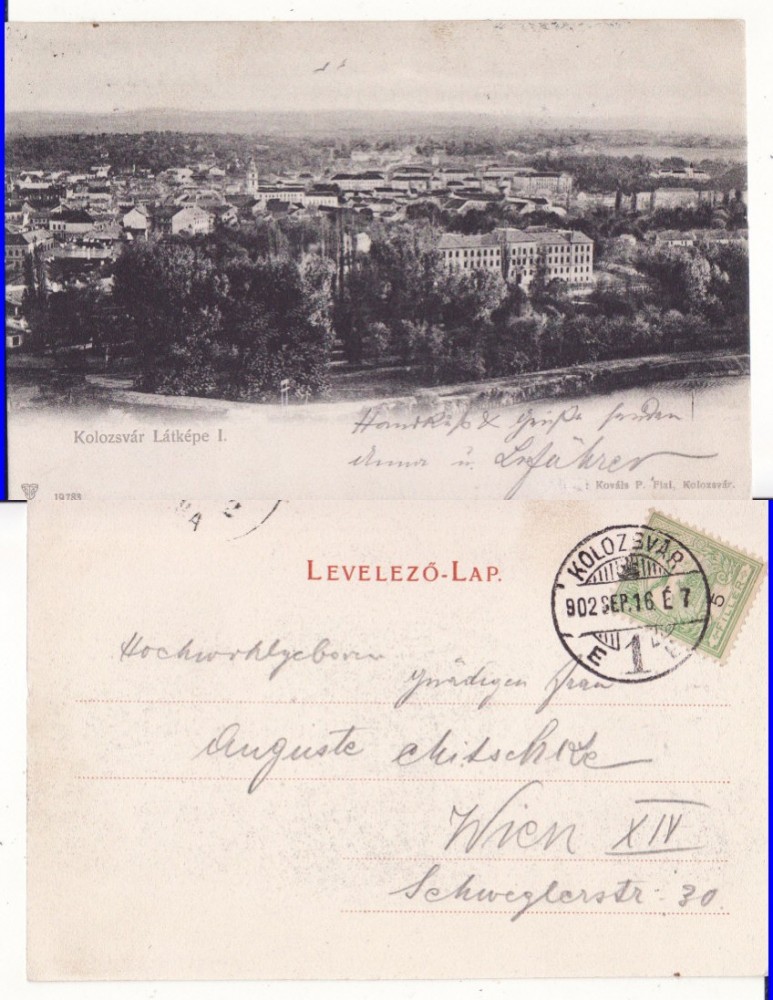 Kolozsvár Látképe I.
Handkuß & Grüße senden
Anna u.
: Kováts P. Fiai, Kolozsvár.
19783
LEVELEZŐ-LAP.
KOLOZSVÁR
902 SEP. 16 É 7
1
FILLÉR
5
Hochwohlgeboren
Gnädigen Frau
Auguste Mitschke
Wien XIV
Schweglerstr. 30.